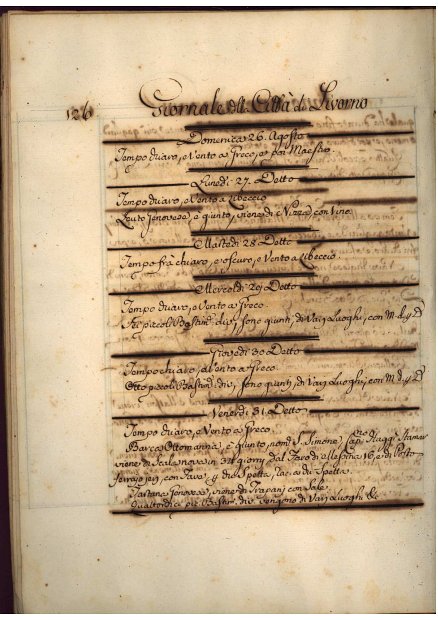 126
Giornale della Città di Livorno
Domenica 26. Agosto
Tempo chiaro, e Vento a Greco, e poi Maestro.
Lunedì 27. Detto
Tempo chiaro, e Vento a Libeccio
Leuto Genovese è giunto, viene di Nizza con vino.
Martedì 28 Detto
Tempo frà chiaro, e oscuro, e Vento a Libeccio.
Mercoldì 29 Detto
Tempo chiaro, e Vento a Greco.
piccoli Bastim: divi, sono giunti, di Varij Luoghi, con M
Giovedì 30 Detto
Tempo chiaro, e Vento a Greco
Otto piccoli Bastim: divi, sono giunti, di Varij Luoghi, con M
Venerdì 31. Detto
Tempo chiaro, e Vento a Greco.
Barca Ottomanna, è giunto, nom S. Simone, Cap:
viene di Scalanova in 38 giorni, dal Faro di 16, e di Porto
ferrajo con Fave, di Spetta
Tartana Genovese, viene di Trapani con Sale
Quattordici pic: Bastim: divi Vengono di Varij Luoghi &c